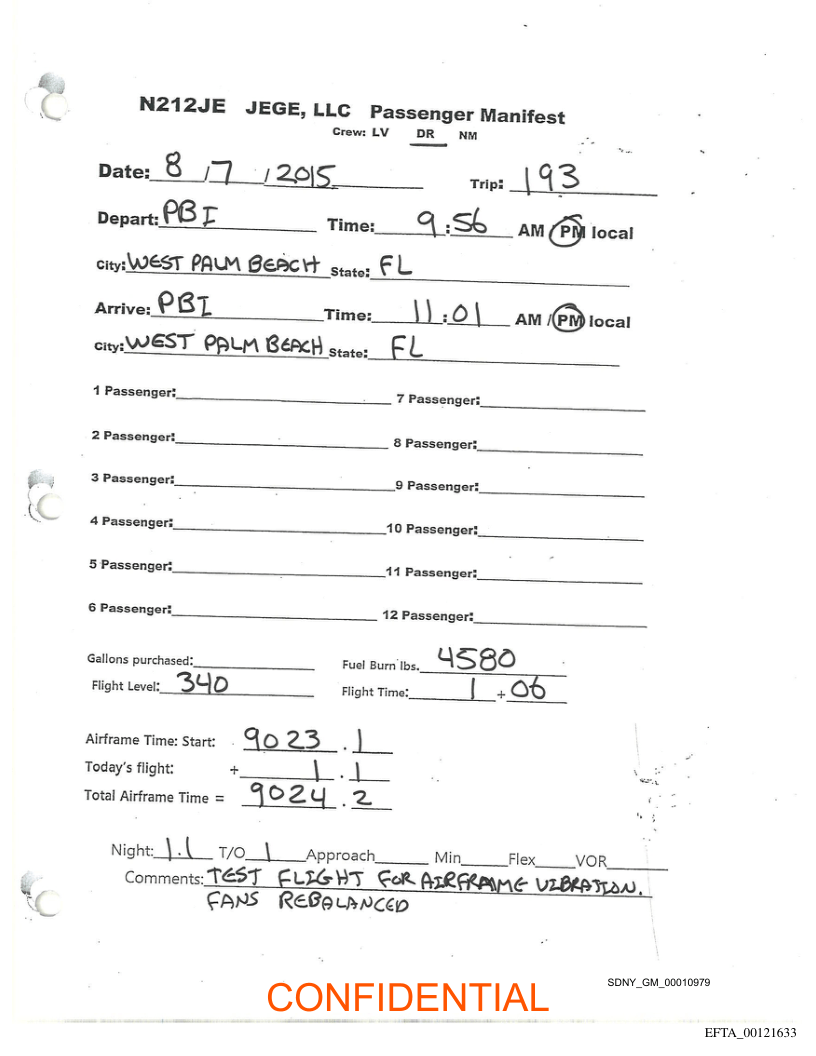 N212JE JEGE, LLC Passenger Manifest
Crew: LV DR NM
Date: 8 / 7 / 2015 Trip: 193
Depart: PBI Time: 9:56 AM / PM local
City: WEST PALM BEACH State: FL
Arrive: PBI Time: 11:01 AM / PM local
City: WEST PALM BEACH State: FL
1 Passenger: 7 Passenger:
2 Passenger: 8 Passenger:
3 Passenger: 9 Passenger:
4 Passenger: 10 Passenger:
5 Passenger: 11 Passenger:
6 Passenger: 12 Passenger:
Gallons purchased: Fuel Burn lbs. 4580
Flight Level: 340 Flight Time: 1 + 06
Airframe Time: Start: 9023 . 1
Today's flight: + 1 . 1
Total Airframe Time = 9024 . 2
Night: 1.1 T/O 1 Approach Min Flex VOR
Comments: TEST FLIGHT FOR AIRFRAME VIBRATION.
FANS REBALANCED
SDNY_GM_00010979
CONFIDENTIAL
EFTA_00121633